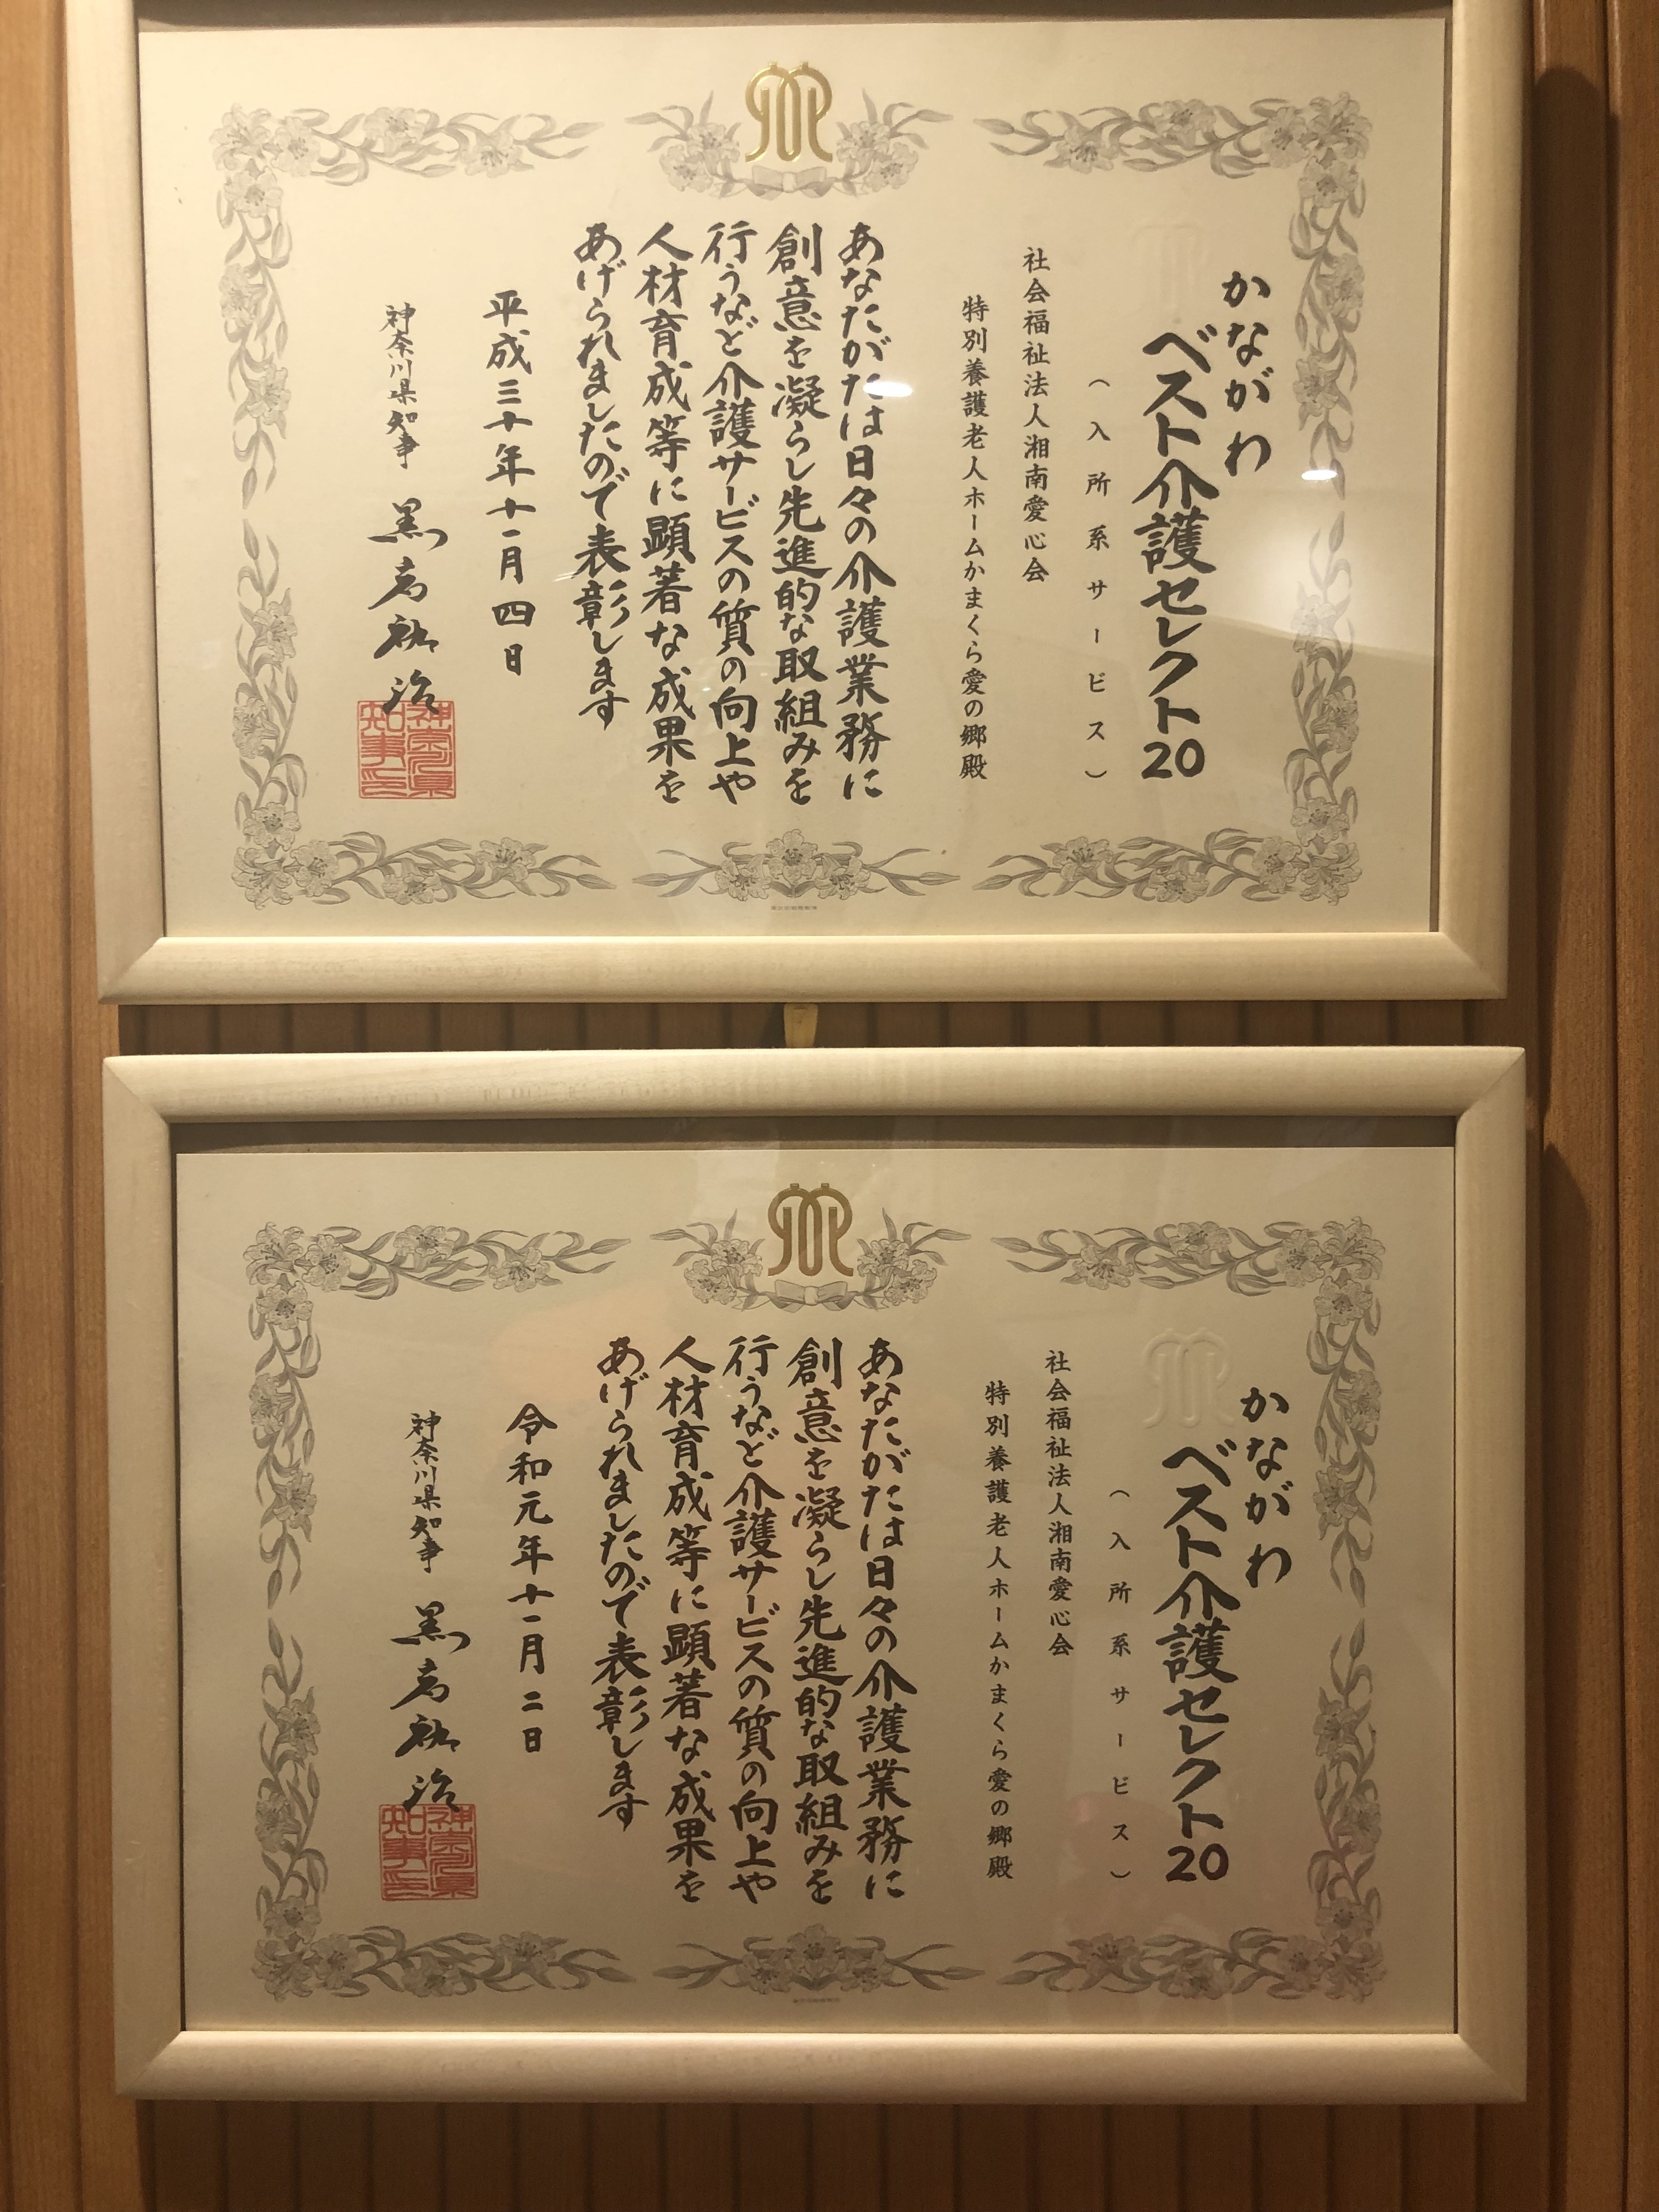 かながわ
ベスト介護セレクト20
（入所系サービス）
社会福祉法人湘南愛心会
特別養護老人ホームかまくら愛の郷殿
あなたがたは日々の介護業務に
創意を凝らし先進的な取組みを
行うなど介護サービスの質の向上や
人材育成等に顕著な成果を
あげられましたので表彰します
平成三十年十一月四日
神奈川県知事 黒岩祐治
神奈川県知事印
かながわ
ベスト介護セレクト20
（入所系サービス）
社会福祉法人湘南愛心会
特別養護老人ホームかまくら愛の郷殿
あなたがたは日々の介護業務に
創意を凝らし先進的な取組みを
行うなど介護サービスの質の向上や
人材育成等に顕著な成果を
あげられましたので表彰します
令和元年十一月二日
神奈川県知事 黒岩祐治
神奈川県知事印